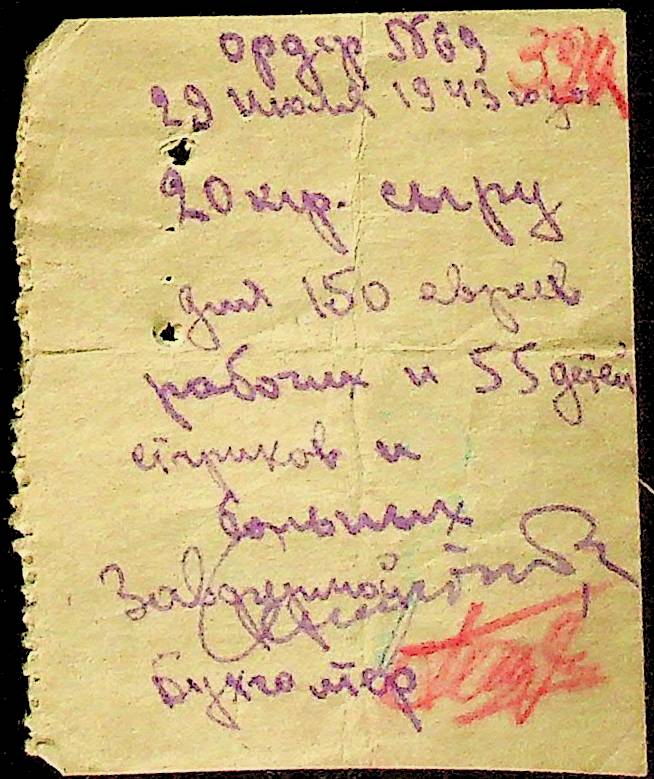 ордер №69
29 июля 1943 года
20 кгр. сыру
для 150 евреев
рабочих и 55 детей
стриков и
больных
Завфермой
бухгалтор